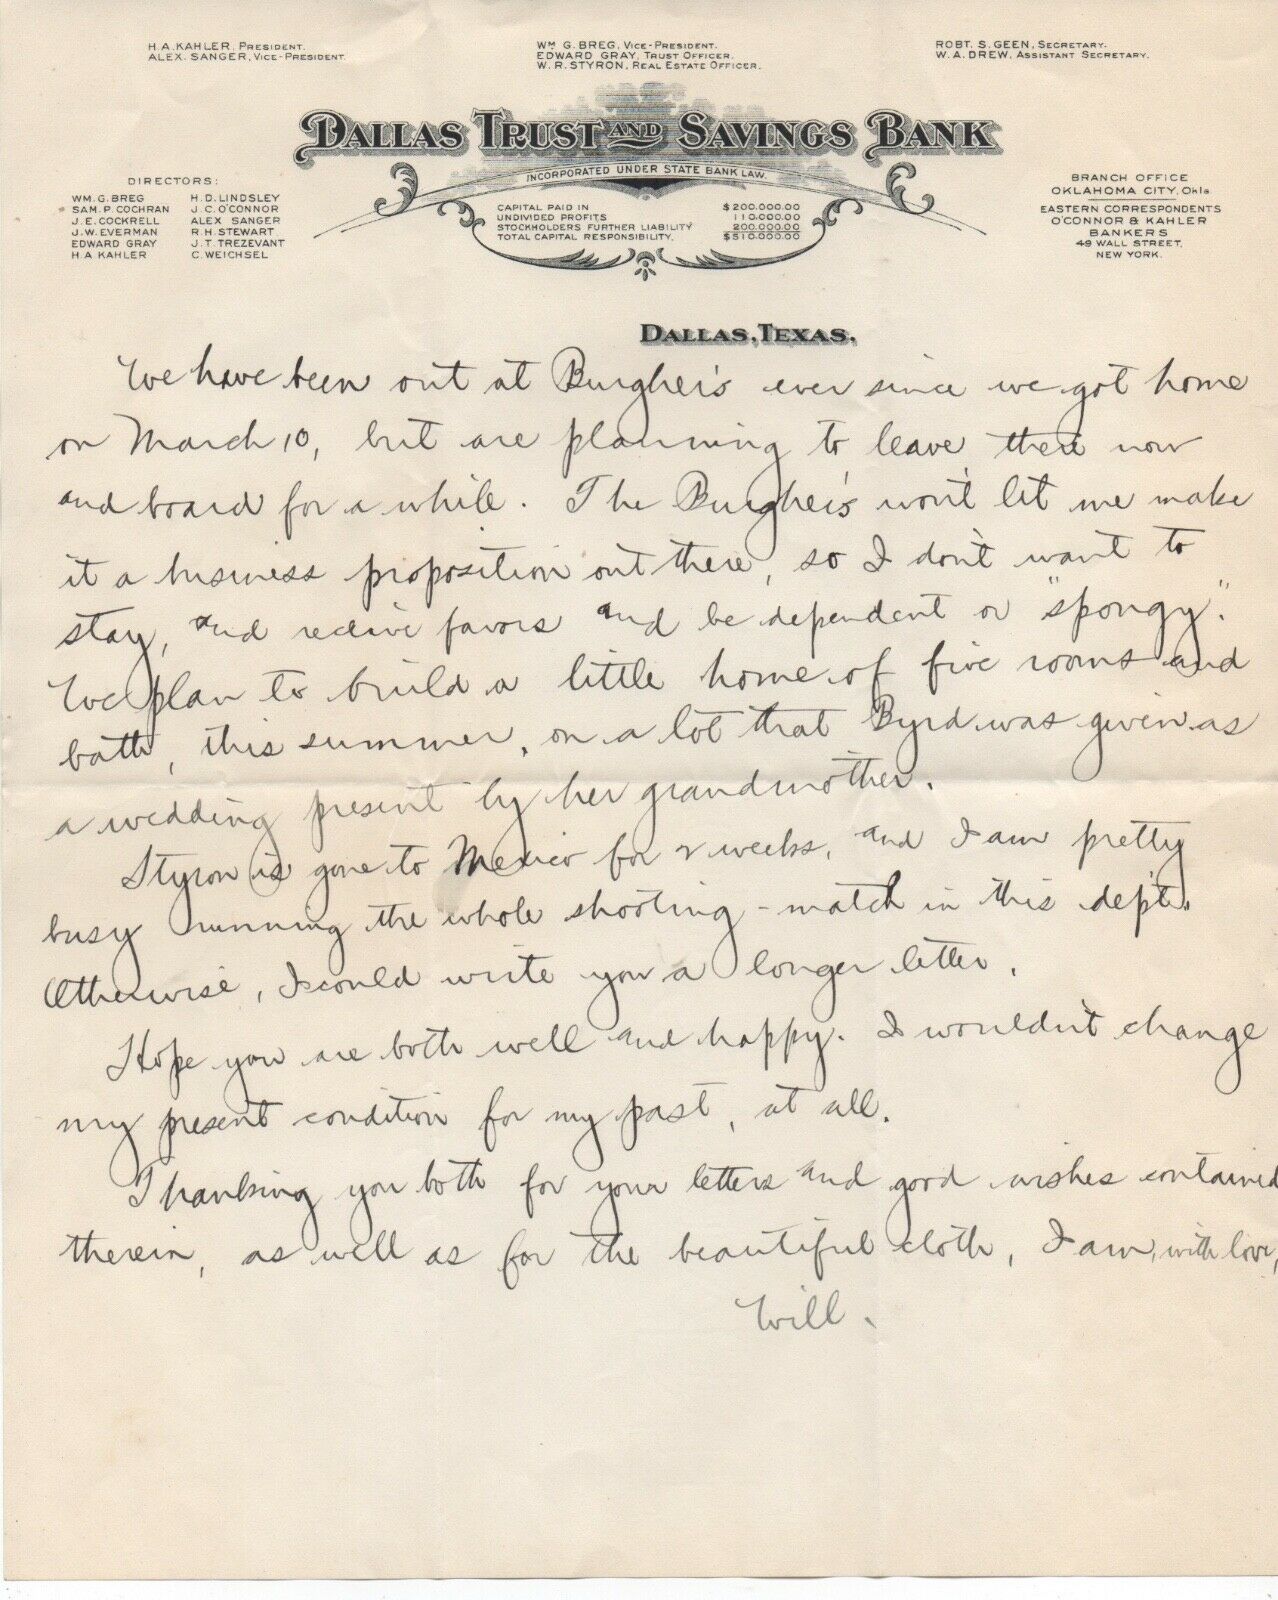 H.A. KAHLER, PRESIDENT.
ALEX. SANGER, VICE-PRESIDENT.
WM G. BREG, VICE-PRESIDENT.
EDWARD GRAY, TRUST OFFICER.
W.R. STYRON, REAL ESTATE OFFICER.
ROBT. S. GEEN, SECRETARY.
W.A. DREW, ASSISTANT SECRETARY.
DALLAS TRUST AND SAVINGS BANK
INCORPORATED UNDER STATE BANK LAW.
DIRECTORS:
WM. G. BREG H. D. LINDSLEY
SAM. P. COCHRAN J. C. O'CONNOR
J. E. COCKRELL ALEX SANGER
J. W. EVERMAN R. H. STEWART
EDWARD GRAY J. T. TREZEVANT
H. A. KAHLER C. WEICHSEL
CAPITAL PAID IN $200.000.00
UNDIVIDED PROFITS 110.000.00
STOCKHOLDERS FURTHER LIABILITY 200.000.00
TOTAL CAPITAL RESPONSIBILITY. $510.000.00
BRANCH OFFICE
OKLAHOMA CITY, Okla
EASTERN CORRESPONDENTS
O'CONNOR & KAHLER
BANKERS
49 WALL STREET,
NEW YORK.
DALLAS, TEXAS.
We have been out at Burgher's ever since we got home
on March 10, but are planning to leave there now
and board for a while. The Burghers won't let me make
it a business proposition out there, so I don't want to
stay, and receive favors and be dependent or "spongy".
We plan to build a little home of five rooms and
bath, this summer, on a lot that Byrd was given as
a wedding present by her grandmother.
Styron is gone to Mexico for 2 weeks, and I am pretty
busy running the whole shooting-match in this dep't.
Otherwise, I could write you a longer letter.
Hope you are both well and happy. I wouldn't change
my present condition for my past, at all.
Thanking you both for your letters and good wishes contained
therein, as well as for the beautiful cloth, I am, with love,
Will.